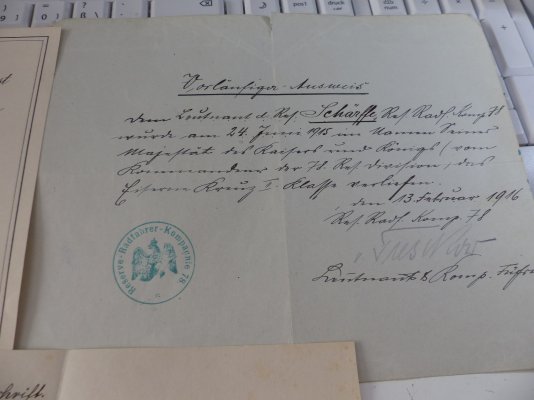 Vorläufiger Ausweis
Dem Leutnant d. Res. Schärffe, Res. Radf. Komp. 78
wurde am 24. Juni 1915 im Namen Seiner
Majestät des Kaisers und Königs (vom
Kommandeur der 78. Res. division) das
Eiserne Kreuz II. Klasse verliehen.
den 13. Februar 1916
Res. Radf. Komp. 78
Leutnant & Komp. Führe
Reserve-Radfahrer-Kompagnie 78
chrift.